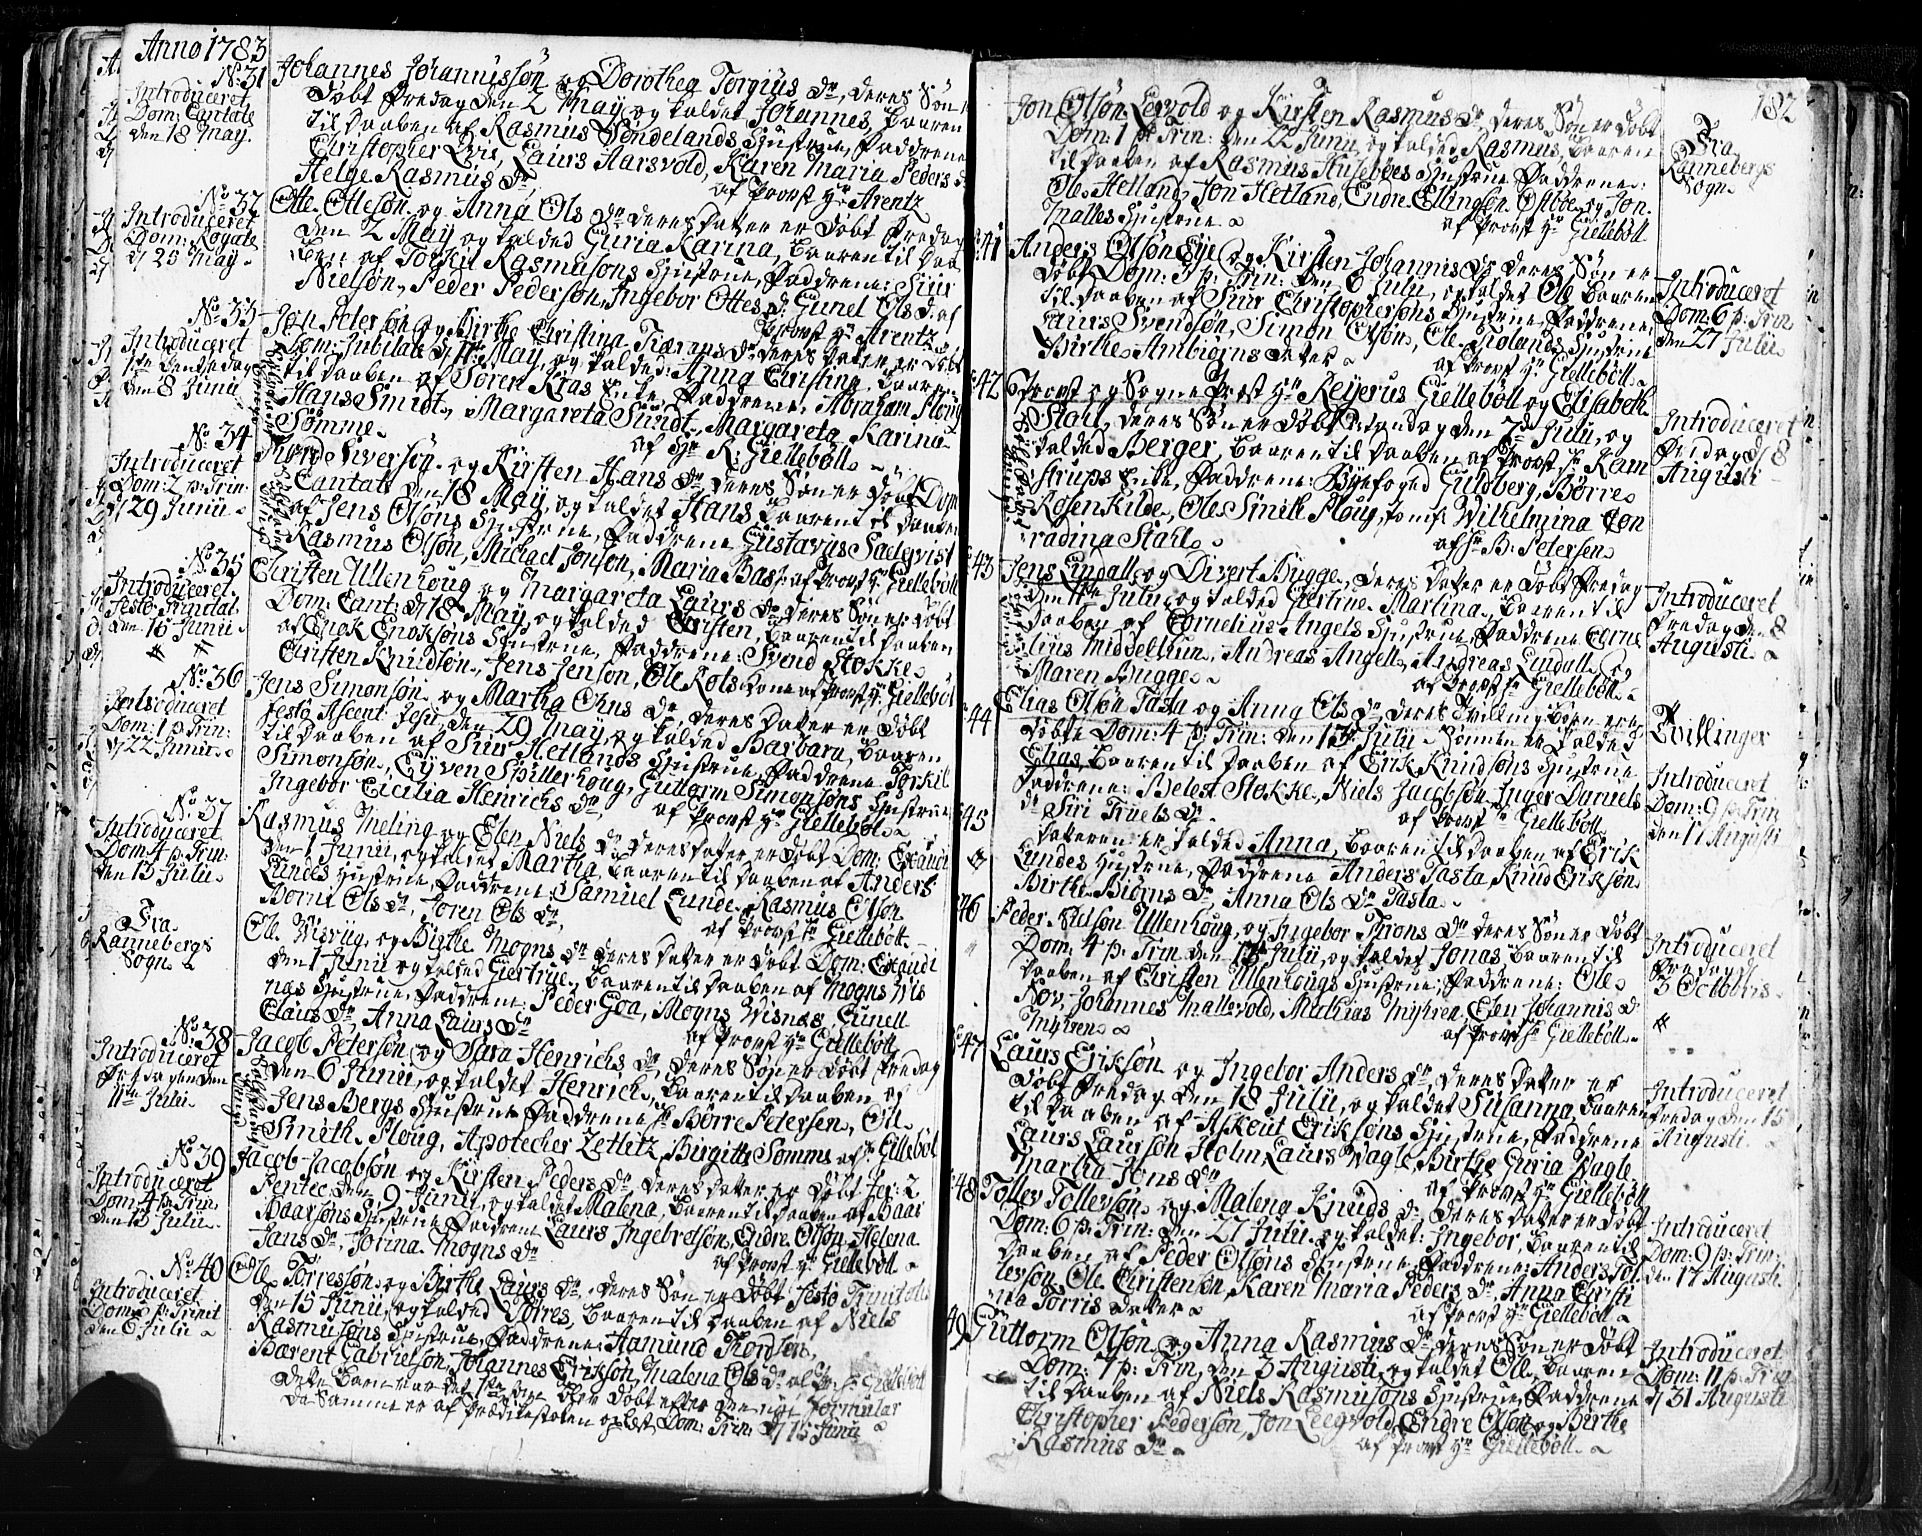 Anno 1783
No: 31
Introduceret
Dom: Cantate
den 18 May.
Johannes Johannissøn og Dorothea Torgius Dr, deres Søn er
døbt Fredag den 2 May og kaldet Johannes, baaren
til daaben af Rasmus Søndelands Hustrue, Faddrene
Christopher Evie, Laurs Harsvold, Karen Maria Peders d:
Helge Rasmus Dr,
af Provst Hr Arentz
No 32
Introduceret
Dom: Rogate
d/ 25 May
Otte Ottesøn og Anna Ols Dr deres Datter er døbt Fredag
den 2 May og kalded Guria Karina, baaren til daa
ben af Torkil Rasmusøns Hustrue, Faddrene: Siur
Nielsøn, Peder Pedersøn, Ingebor Ottes d: Gunel Ols d. af
Provst Hr Arentz
No: 33
Introduceret
den 8 Junii
Jon Petersøn og Birthe Christina Dr: deres Datter er døbt
Dom: Jubilate d/ 11te May, og kalded: Anna Christina, baaren
til daaben af Søren Kias Enke, Faddrene, Abraham Ploug
Hans Smidt, Margareta Sundt, Margareta Karina
Sømme
af Hr R: Giellebøll
No 34
Introduceret
Dom: 2 p: Trin:
d/ 29 Junii
Tord Siversøn og Kirsten Hans Dr deres Søn er døbt Dom
Cantate den 18 May, og kaldet Hans baaren til daaben
af Jens Olsøns Hustrue, Faddrene Gustavus Saelqvist
Rasmus Olsøn, Michael Jonsøn, Maria Bas: af Provst Hr Giellebøll
No: 35
Introduceret
Festo Trinitat
den 15 Junii
Christen Ullenhoug og Margareta Laurs Dr deres Søn er døbt
Dom: Cant: d/ 18 May, og kalded Christen, baaren til daaben
af Enok Enoksøns Hustrue, Faddrene: Svend Stokke
Christen Knudsøn, Jens Jensøn, Ole Rots Kone af Provst Hr Giellebøl
No: 36
Introduceret
Dom: 1 p: Trin:
d/ 22 Junii
Jens Simonsøn og Martha Dr, deres Datter er døbt
Festo Ascent: Jesu den 29 May, og kalded Barbara, baaren
til daaben af Siur Hetlands Hustrue, Faddrene Torkil
Simonsøn, Eyven Spillerhoug, Guttorm Simonsøns Hustrue
Ingebor Cicilia Henrichs Dr
af Provst Hr Giellebøl
No: 37
Introduceret
Dom 4 p: Trin:
den 13 Julii
Rasmus Meling og Elen Niels Dr deres Datter er døbt Dom: Exaudi
den 1 Junii, og kaldet Martha, baaren til daaben af Anders
Lundes Hustrue, Faddrene: Samuel Lunde, Rasmus Olsøn
Borni Ols Dr, Joren Ols Dr,
af Provst Hr Giellebøll
Fra
Rannebergs
Sogn
Ole Visvig og Birthe Mogns Dr deres Datter er døbt Dom: Exaudi
den 1 Junii og kalded Giertrue, baaren til daaben af Mogns Vis
næs Hustrue, Faddrene: Peder Goa, Mogns Visnæs, Gunell
Claus Dr, Anna Laurs Dr
af Provst Hr Giellebøll
No: 38
Introduceret
Fredagen den
11te Julii
Jacob Petersøn og Sara Henrichs Dr, deres Søn er døbt Fredag
den 6 Junii, og kaldet Henrich, baaren til daaben af
Jens Bergs Hustrue Faddrene Hr Børre Petersen, Oll
Smith Ploug, Apotecher Zetlitz, Birgitte Somms af Hr Gillebøl
No 39
Introduceret
Dom: 4 p: Trin.
den 13 Julii
Jacob Jacobsøn og Kirsten Peders Dr, deres Datter er døbt Fer: 2
Pentec: den 9 Junii, og kaldet Malena, baaren til daaben af Baar
Baarsøns Hustrue, Faddrene Laurs Ingebretsøn, Endre Olsøn, Helena
Jans Dr, Jorina Mogns Dr
af Provst Hr Giellebøll
No: 40
Introduceret
Dom: 3 p: Trinit
den 6 Julii
Ole Torressøn og Birthe Laurs Dr, deres Søn er døbt Festo Trinitatis
den 15 Junii, og kalded Torres, baaren til daaben af Niels
Rasmusøns Hustrue, Faddrene: Aamund Tordsøn,
Barent Gabrielsøn, Johannes Eriksøn, Malena Ols Dr af Pr: Hr Giellebøll
Dette barn var det 1ste som blev døbt efter den nye Formular
da Samme er af Prædikestolen oplæst Dom: Trin: d/ 15 Junii
182
Jon Olsøn Legvold og Kirsten Rasmus Dr, deres Søn er døbt
Dom: 1 p: Trin: den 22 Junii, og kalded Rasmus, baaren
til daaben af Rasmus Husebøes Hustrue Faddrene:
Ole Helland, Jon Hetland, Endre Ellingsøn Østbøe og Jon
Malles Hustrue
af Provst Hr Giellebøll
Fra
Rannebergs
Sogn
41
Anders Olsøn Eye og Kirsten Johannis Dr deres Søn er
døbt Dom: 3 p: Trin: den 6 Julii, og kaldet Ole baaren
til daaben af Siur Christophersøns Hustrue, Faddrene:
Laurs Svendsøn, Simon Olsøn, Ole Tiolands Hustrue
Birthe Ambiørns Datter
af Provst Hr Giellebøll
Introduceret
Dom: 6 p: Trin
den 27 Julii
42
Provst og Sogne Præst Hr Reyerus Giellebøll og Elisabeth
Stahl, deres Søn er døbt Mandag den 7de Julii, og
kalded Berger, baaren til daaben af Provst Hr Ram
strups Enke, Faddrene: Byefoged Guldberg, Børre
Rosenkilde, Ole Smith Ploug, Jomfr Wilhelmina Con
radina Stahl
af Hr B: Petersen
Introduceret
Fredag d/ 8
Augusti
43
Jens Lindall og Divert Bugge, deres Datter er døbt Fredag
den 11te Julii og kalded Giertrue Martina, baaren til
daaben af Cornelius Angels Hustrue, Faddrene Corne
lius Middelthun, Andreas Angell, Andreas Lindall og
Maren Bugge
af Provst Hr Giellebøll
Introduceret
Fredag den 8
Augusti
44
Elias Olsøn Tasta og Anna Ols Dr deres Tvilling børn ere
døbte Dom: 4 p: Trin: den 13 Julii Sønnen er kalded
Elias, baaren til daaben af Erik Knudsøns Hustrue
Faddrene: Belest Stokke, Niels Jacobsøn, Inger Daniels
Dr Siri Truels Dr
af Provst Hr Giellebøll
Tvillinger
Introduceret
Dom: 9 p: Trin
den 17 Augusti
45
Datteren er kalded Anna, baaren til daaben af Erik
Lundes Hustrue, Faddrene Anders Tasta, Knud Eriksøn
Birthe Biørns Dr, Anna Ols Dr Tasta
46
Peder Nilsøn Ullenhoug, og Ingebor Trons Dr deres Søn er døbt
Dom: 4 p: Trin den 13 Julii, og kaldet Jonas baaren til
daaben af Christen Ullenhougs Hustrue, Faddrene: Ole
Nov, Johannes Mallevold, Mathias Myhren, Elen Johannis d:
Myhren
af Provst Hr Giellebøll
Introduceret
Fredag d/
3 Octobris
47
Laurs Eriksøn og Ingebor Anders Dr, deres Datter er
døbt Fredag den 18 Julii, og kaldet Susanna, baaren
til daaben af Askout Eriksøns Hustrue, Faddrene
Laurs Laursøn Holm Laurs Vagle, Birthe Guria Vagle
Martha Jons Dr
af Provst Hr Giellebøll
Introduceret
Fredag den 15
Augusti
48
Tollev Tollevsøn og Malena Knuds d: deres Datter er døbt
Dom: 6 p: Trin: den 27 Julii og kaldet: Ingebor, baaren til
daaben af Peder Olsøns Hustrue, Faddrene: Anders Tol
levsøn, Ole Christensøn, Karen Maria Peders Dr, Anna Christi
na Torris Datter
af Provst Hr Giellebøll
Introduceret
Dom: 9 p: Trin:
den 17 Augusti
49
Guttorm Olsøn og Anna Rasmus Dr deres Søn er døbt
Dom: 7 p: Trin, den 3 Augusti og kaldet Ole, baaren
til daaben af Niels Rasmusøns Hustrue, Faddrene
Christopher Pedersøn, Jon Leegvold, Endre Olsøn og Birthe
Rasmus Dr
af Provst Hr Giellebøll
Introduceret
Dom: 11 p: Trin
d/ 31 Augusti